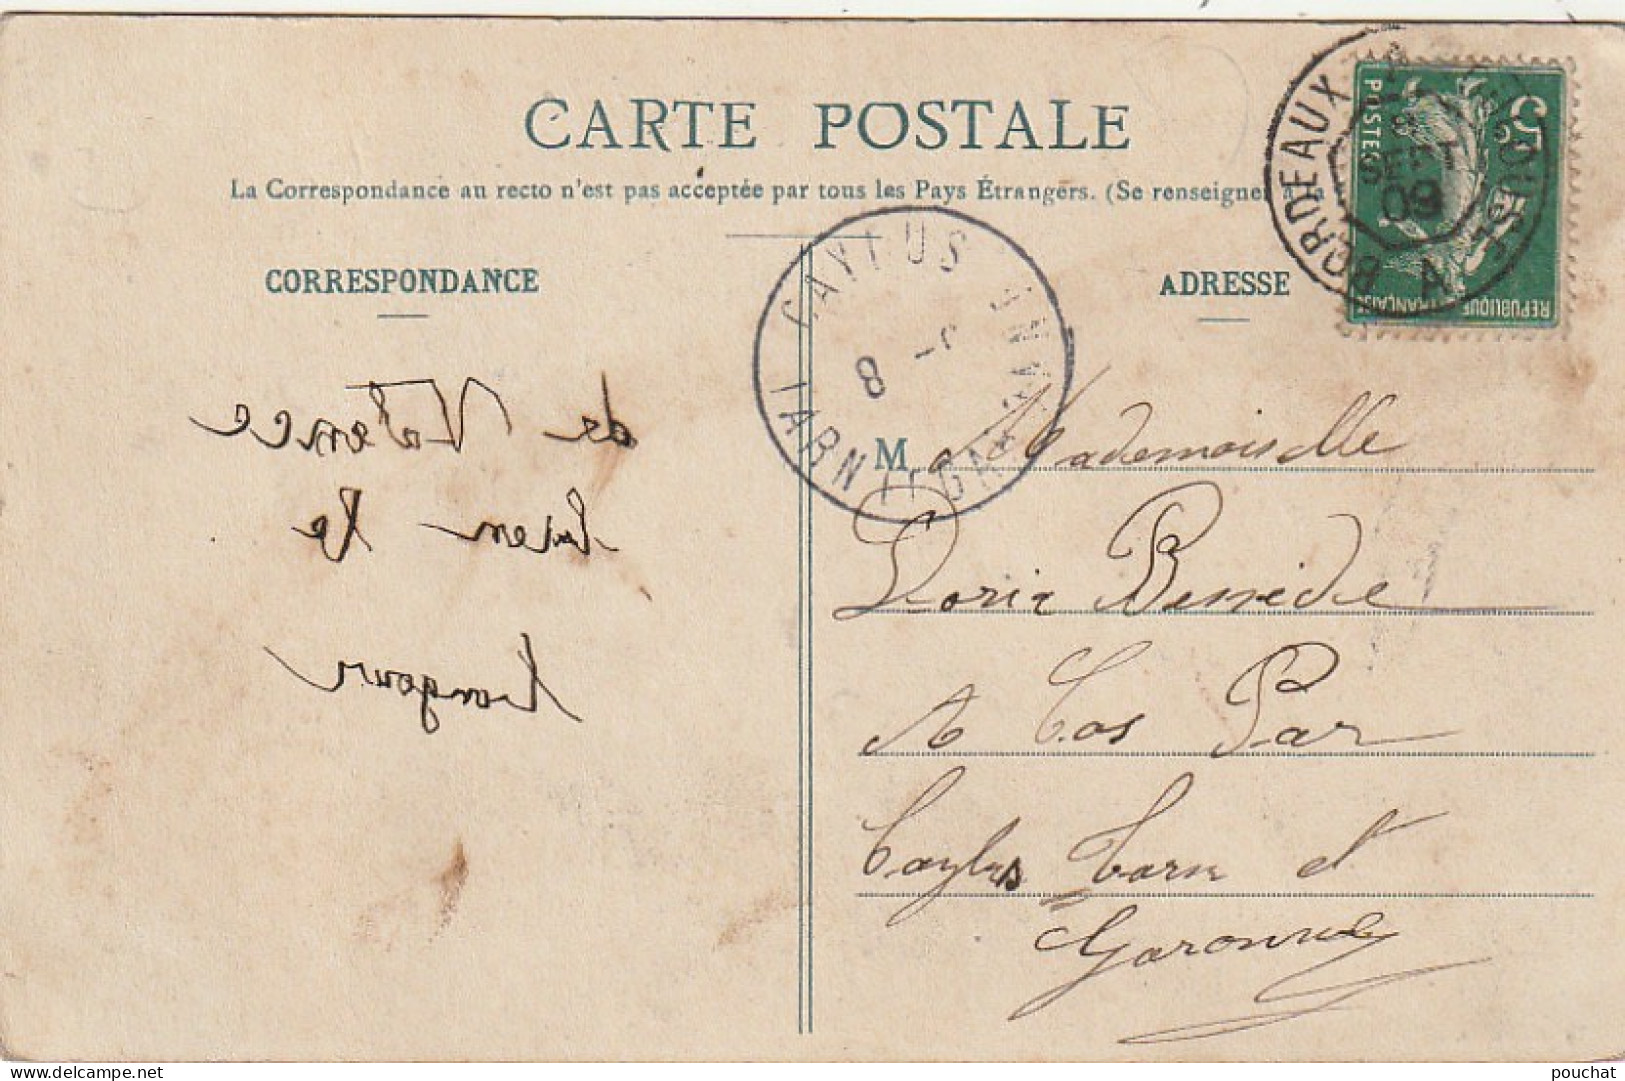 CARTE POSTALE
La Correspondance au recto n'est pas acceptée par tous les Pays Étrangers. (Se renseigner à la
CORRESPONDANCE
ADRESSE
BORDEAUX
SEPT
09
A
POSTES
5c
REPUBLIQUE FRANÇAISE
CAYLUS
8
TARN
de Valence
bien le
bonjour
M. a Mademoiselle
Doria Benéde
A Cas Par
Caylus Tarn et
Garonne
www.delcampe.net
pouchat